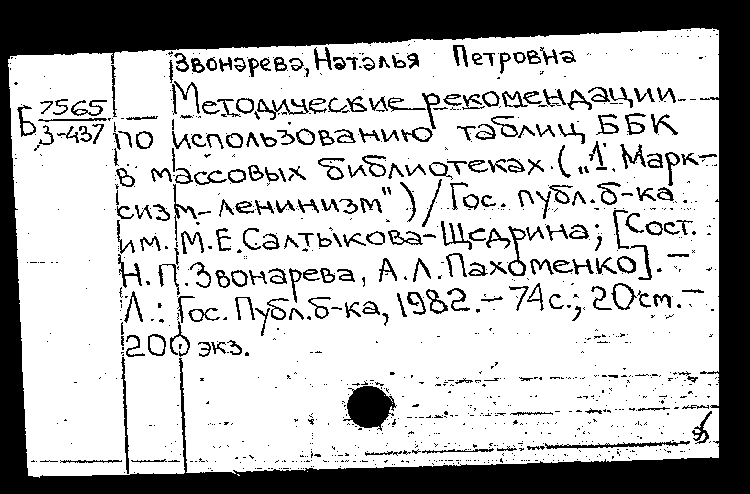 Звонарева, Наталья Петровна
Б 7565
З-437
Методические рекомендации
по использованию таблиц ББК
в массовых библиотеках. („1. Марк-
сизм-ленинизм") / Гос. публ. б-ка
им. М.Е. Салтыкова-Щедрина; [Сост.
Н.П. Звонарева, А.Л. Пахоменко]. –
Л.: Гос. Публ. б-ка, 1982. – 74 с.; 20 см. –
200 экз.